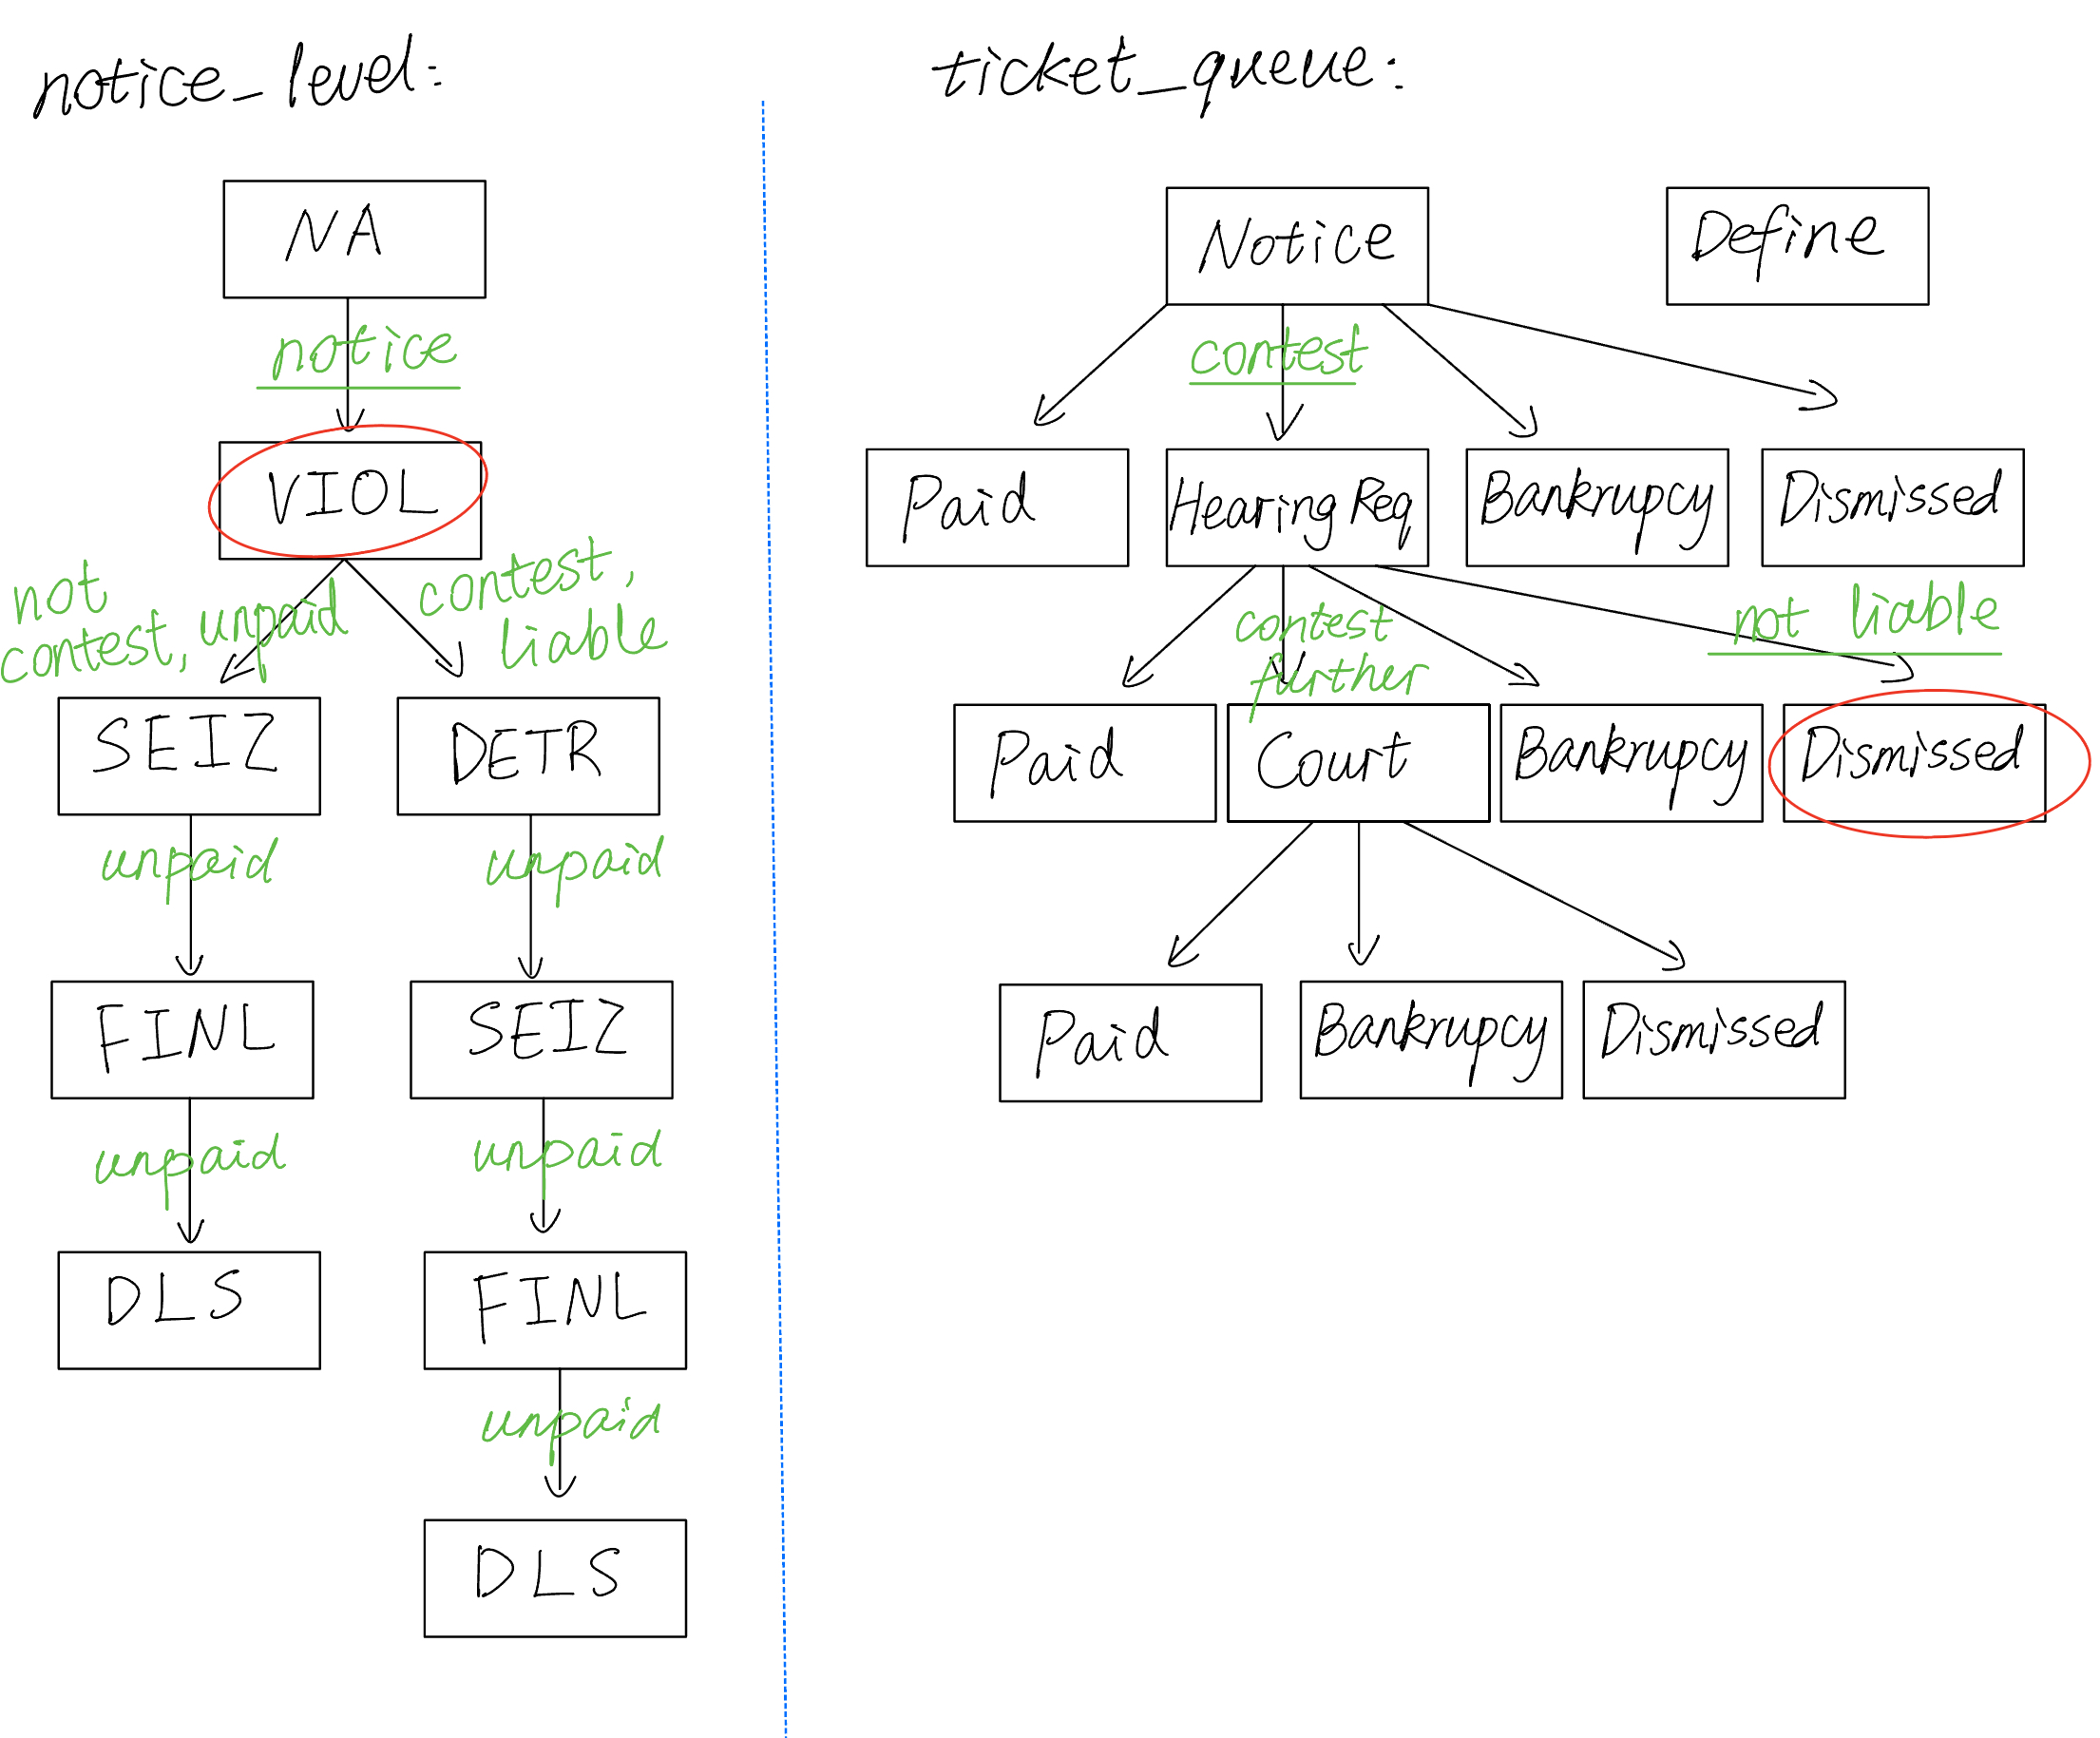 notice_level:
NA
notice
VIOL
not
contest, unpaid
contest,
liable
SEIZ
DETR
unpaid
unpaid
FINL
SEIZ
unpaid
unpaid
DLS
FINL
unpaid
DLS
ticket_queue:
Notice
Define
contest
Paid
Hearing Req
Bankrupcy
Dismissed
contest
further
not liable
Paid
Court
Bankrupcy
Dismissed
Paid
Bankrupcy
Dismissed